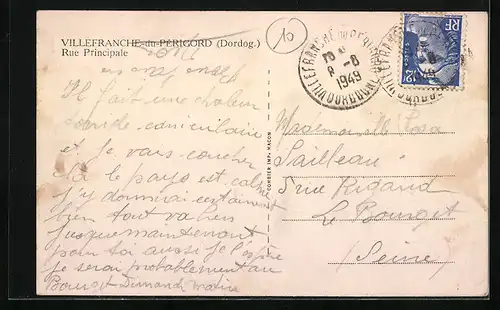 VILLEFRANCHE-du-PÉRIGORD (Dordog.)
Rue Principale
Il fait une chaleur
torride caniculaire
et je vais coucher
là le pays est calme
j'y dormirai certainement
bien tout va bien
jusque maintenant
pour toi aussi je l'espère
je serai probablement au
Bourget Dimanche matin
COMBIER IMP. MACON
VILLEFRANCHE DU PÉRIGORD
DORDOGNE
8 - 8
1949
RF
POSTES
12F
Mademoiselle
Sailleau
5 rue Rigaud
Le Bourget
(Seine)